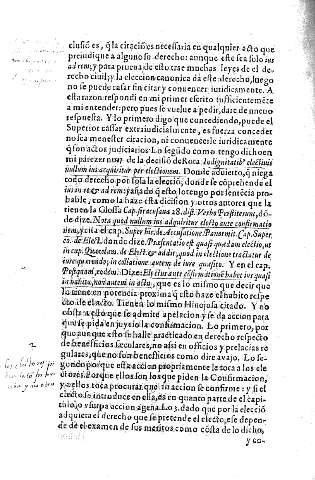 clusiõ es, q̃ la citaciõ es necesaria en qualquier acto que
prejudique a alguno su derecho: aunque este sea solo ius
ad rem; y para prueua desto trae muchas leyes de el de-
recho ciuil; y la eleccion canonica dà este derecho, luego
no se puede casar sin citar y conuencer iuridicamente. A
esta razon respondi en mi primer escrito suficientemẽte
a mi entender; pero pues se vuelue a pedir, dare de nueuo
respuesta. Y lo primero digo que concediendo, puede el
Superior cassar extrajudicialmente, es fuerça conceder
no sea menester citacion, ni conuencerle iuridicamente
q̃ son actos judiciarios. Lo segũdo como tengo dicho en
mi parecer de la decisiõ de Rota Indignitatis electionis
nullum ius acquiritur per electionem. Donde aduierto, q̃ niega
todo derecho por sola la elecciõ, donde se cõprehende el
ius in re & ad rem; y asi dado q̃ esto lo tengo por sentẽcia pro-
bable, como la haze esta dicision y otros autores que la
tienen la Glossa Cap. siracusana 28. dist. Verbo Prestiterunt, dõ-
de dize. Nota quod nullum ius adquiritur electo ante confirmatio
nem, y cita el cap. Super his. de accusatione Panormit. Cap. Super
eo. de Elect. dande dize. Præsentatio est quasi quædam electio, ut
in cap. Quærdam. de Elect. & addit, quod in electione tractatur de
iure querendo; in collatione autem de iure quæsito. Y en el cap.
Postquam, eodem: Dize: Electus ante confirmationẽ habet ius quasi
in habitu, non autem in actu, que es lo mismo que decir que
lo tiene en potencia proxima; esto haze el habito respe
cto de el acto. Tiene a lo mismo Hinojosa citado. Y no
obsta a esto que se admite apelacion y se da accion para
que se pida en juyzio la confirmacion. Lo primero, por
que aunque esto se halle practicado en derecho respecto
de beneficios seculares, no asi en officios y prelacias re
gulares, que no son beneficios como dire avajo. Lo se-
gundo porque esta accion propriamente le toca a los ele
ctores. Porque ellos son los que piden la Confirmacion,
y a ellos toca procurar, que la accion se confirme: y si el
electo se introduce en ella, es en quanto parte de el capi-
tulo, o usurpa accion agena. Lo 3. dado que por la elecciõ
adquiera el derecho que se pretende el electo, ese depen-
de de el examen de sus meritos como cõsta de lo dicho,
y co-
2